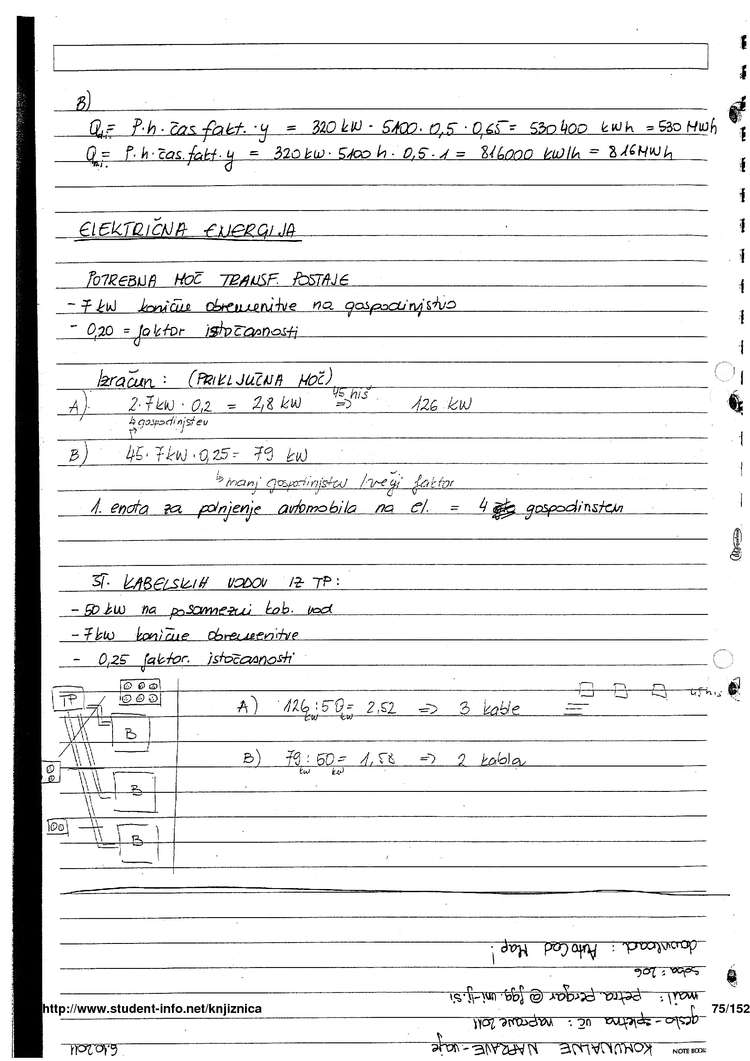 B)
Q = P.h.čas.fakt. · y = 320 kW · 5100 · 0,5 · 0,65 = 530 400 kWh = 530 MWh
Q = P.h.čas.fakt. y = 320 kW · 5100 h · 0,5 · 1 = 816000 kW/h = 816 MWh
ELEKTRIČNA ENERGIJA
POTREBNA MOČ TRANSF. POSTAJE
- 7 kW konične obremenitve na gospodinjstvo
- 0,20 = faktor istočasnosti
Izračun : (PRIKLJUČNA MOČ)
A) 2·7 kW · 0,2 = 2,8 kW 45 hiš => 126 kW
4 gospodinjstev
B) 45·7 kW · 0,25 = 79 kW
↳ manj gospodinjstev / večji faktor
1. enota za polnjenje avtomobila na el. = 4 gospodinstem
ŠT. KABELSKIH VODOV IZ TP :
- 50 kW na posamezni kab. vod
- 7 kW konične obremenitve
- 0,25 faktor. istočasnosti
TP
B
B
B
A) 126 kW : 50 kW = 2,52 => 3 kable
45 hiš
B) 79 kW : 50 kW = 1,58 => 2 kabla
download : AutoCad Map!
soba : 206
mail : petra.pergar @ fgg.uni-lj.si
http://www.student-info.net/knjiznica
75/152
geslo - spletna uč : naprave 2011
KOMUNALNE NAPRAVE - vaje
6.10.2011
NOTE BOOK